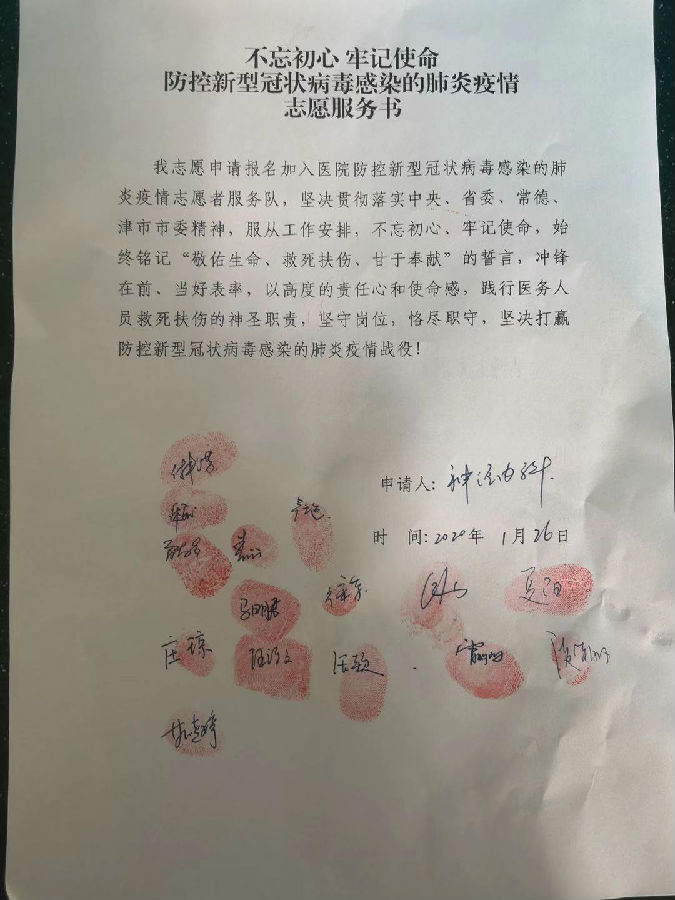 不忘初心 牢记使命
防控新型冠状病毒感染的肺炎疫情
志愿服务书
我志愿申请报名加入医院防控新型冠状病毒感染的肺
炎疫情志愿者服务队，坚决贯彻落实中央、省委、常德、
津市市委精神，服从工作安排，不忘初心、牢记使命，始
终铭记“敬佑生命、救死扶伤、甘于奉献”的誓言，冲锋
在前、当好表率，以高度的责任心和使命感，践行医务人
员救死扶伤的神圣职责，坚守岗位，恪尽职守，坚决打赢
防控新型冠状病毒感染的肺炎疫情战役！
申请人：神经内科
时 间：2020年 1月26日
夏阳
庄琼